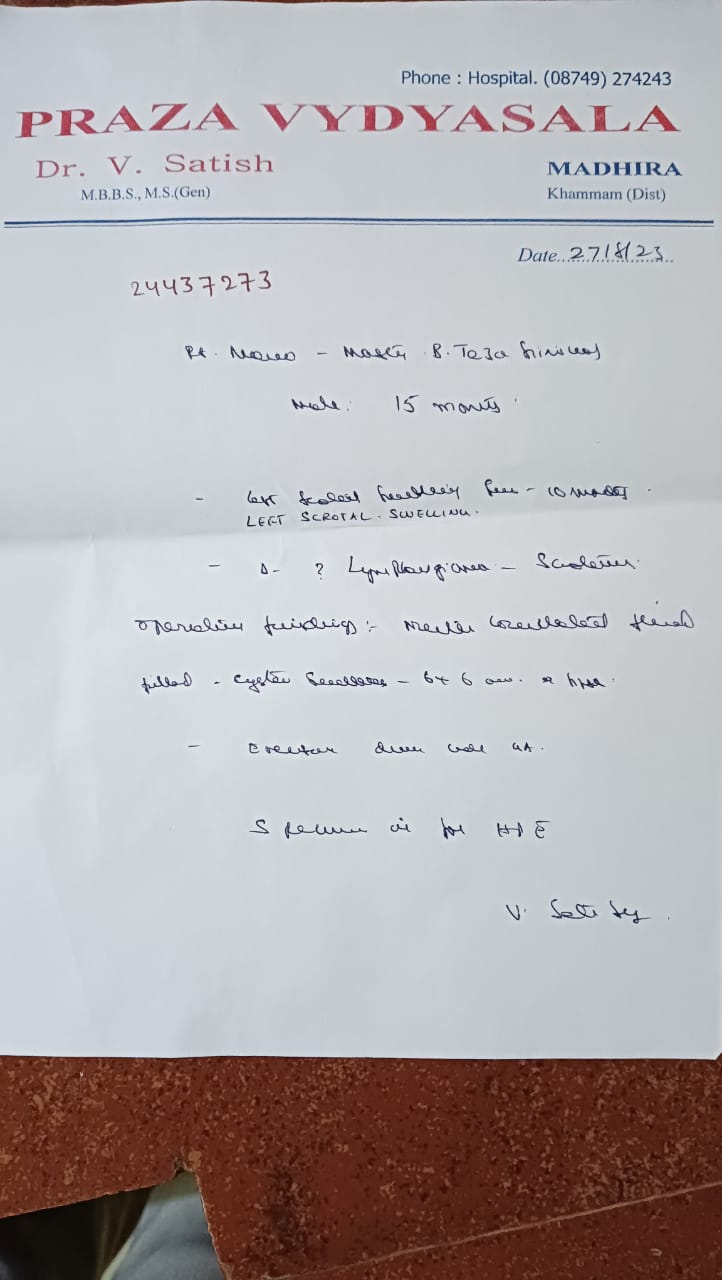 Phone : Hospital. (08749) 274243
PRAZA VYDYASALA
Dr. V. Satish
MADHIRA
M.B.B.S., M.S.(Gen)
Khammam (Dist)
Date 27/8/23
24437273
Pt. Name - Master B. Teja
Male. 15 months
- left scrotal swelling - 10 months.
LEFT SCROTAL. SWELLING.
- ? Lymphangioma - Scrotum.
operative findings :- fluid
filled - cystic swelling - 6x6 cm.
- Excision done under GA.
Specimen is for HPE
V. Satish